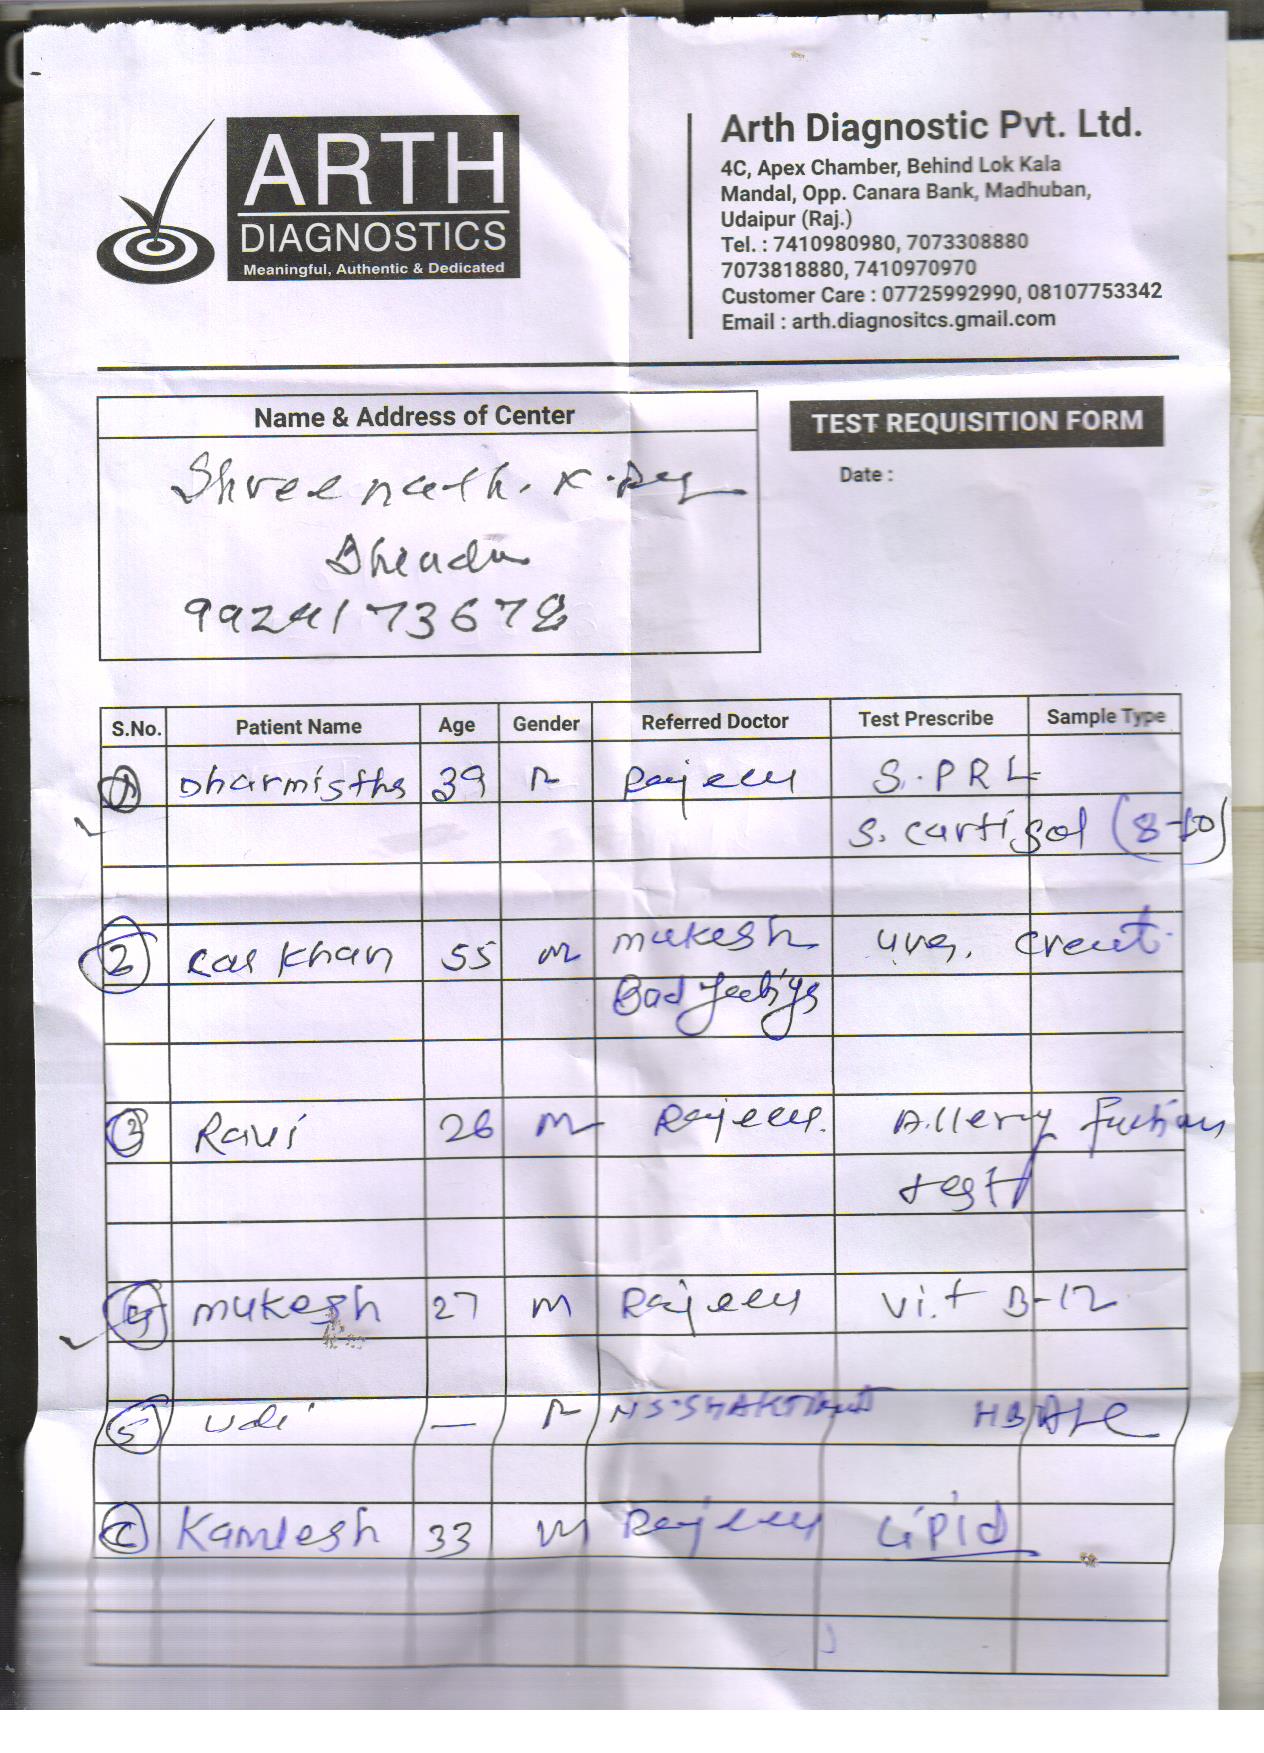 ARTH
DIAGNOSTICS
Meaningful, Authentic & Dedicated
Arth Diagnostic Pvt. Ltd.
4C, Apex Chamber, Behind Lok Kala
Mandal, Opp. Canara Bank, Madhuban,
Udaipur (Raj.)
Tel. : 7410980980, 7073308880
7073818880, 7410970970
Customer Care : 07725992990, 08107753342
Email : arth.diagnositcs.gmail.com
Name & Address of Center
TEST REQUISITION FORM
Date :
Shreenath. X-Ray
9924173678
S.No. Patient Name Age Gender Referred Doctor Test Prescribe Sample Type
1 Dharmistha 39 Rajeev S. PRL
S. cartisol (8-10)
2 khan 55 m mukesh creat.
3 Ravi 26 m Rajeev. Allery
test
4 mukesh 27 m Rajeev Vi.t B-12
5 Udi — HBA1C
6 Kamlesh 33 m Rajeev Lipid